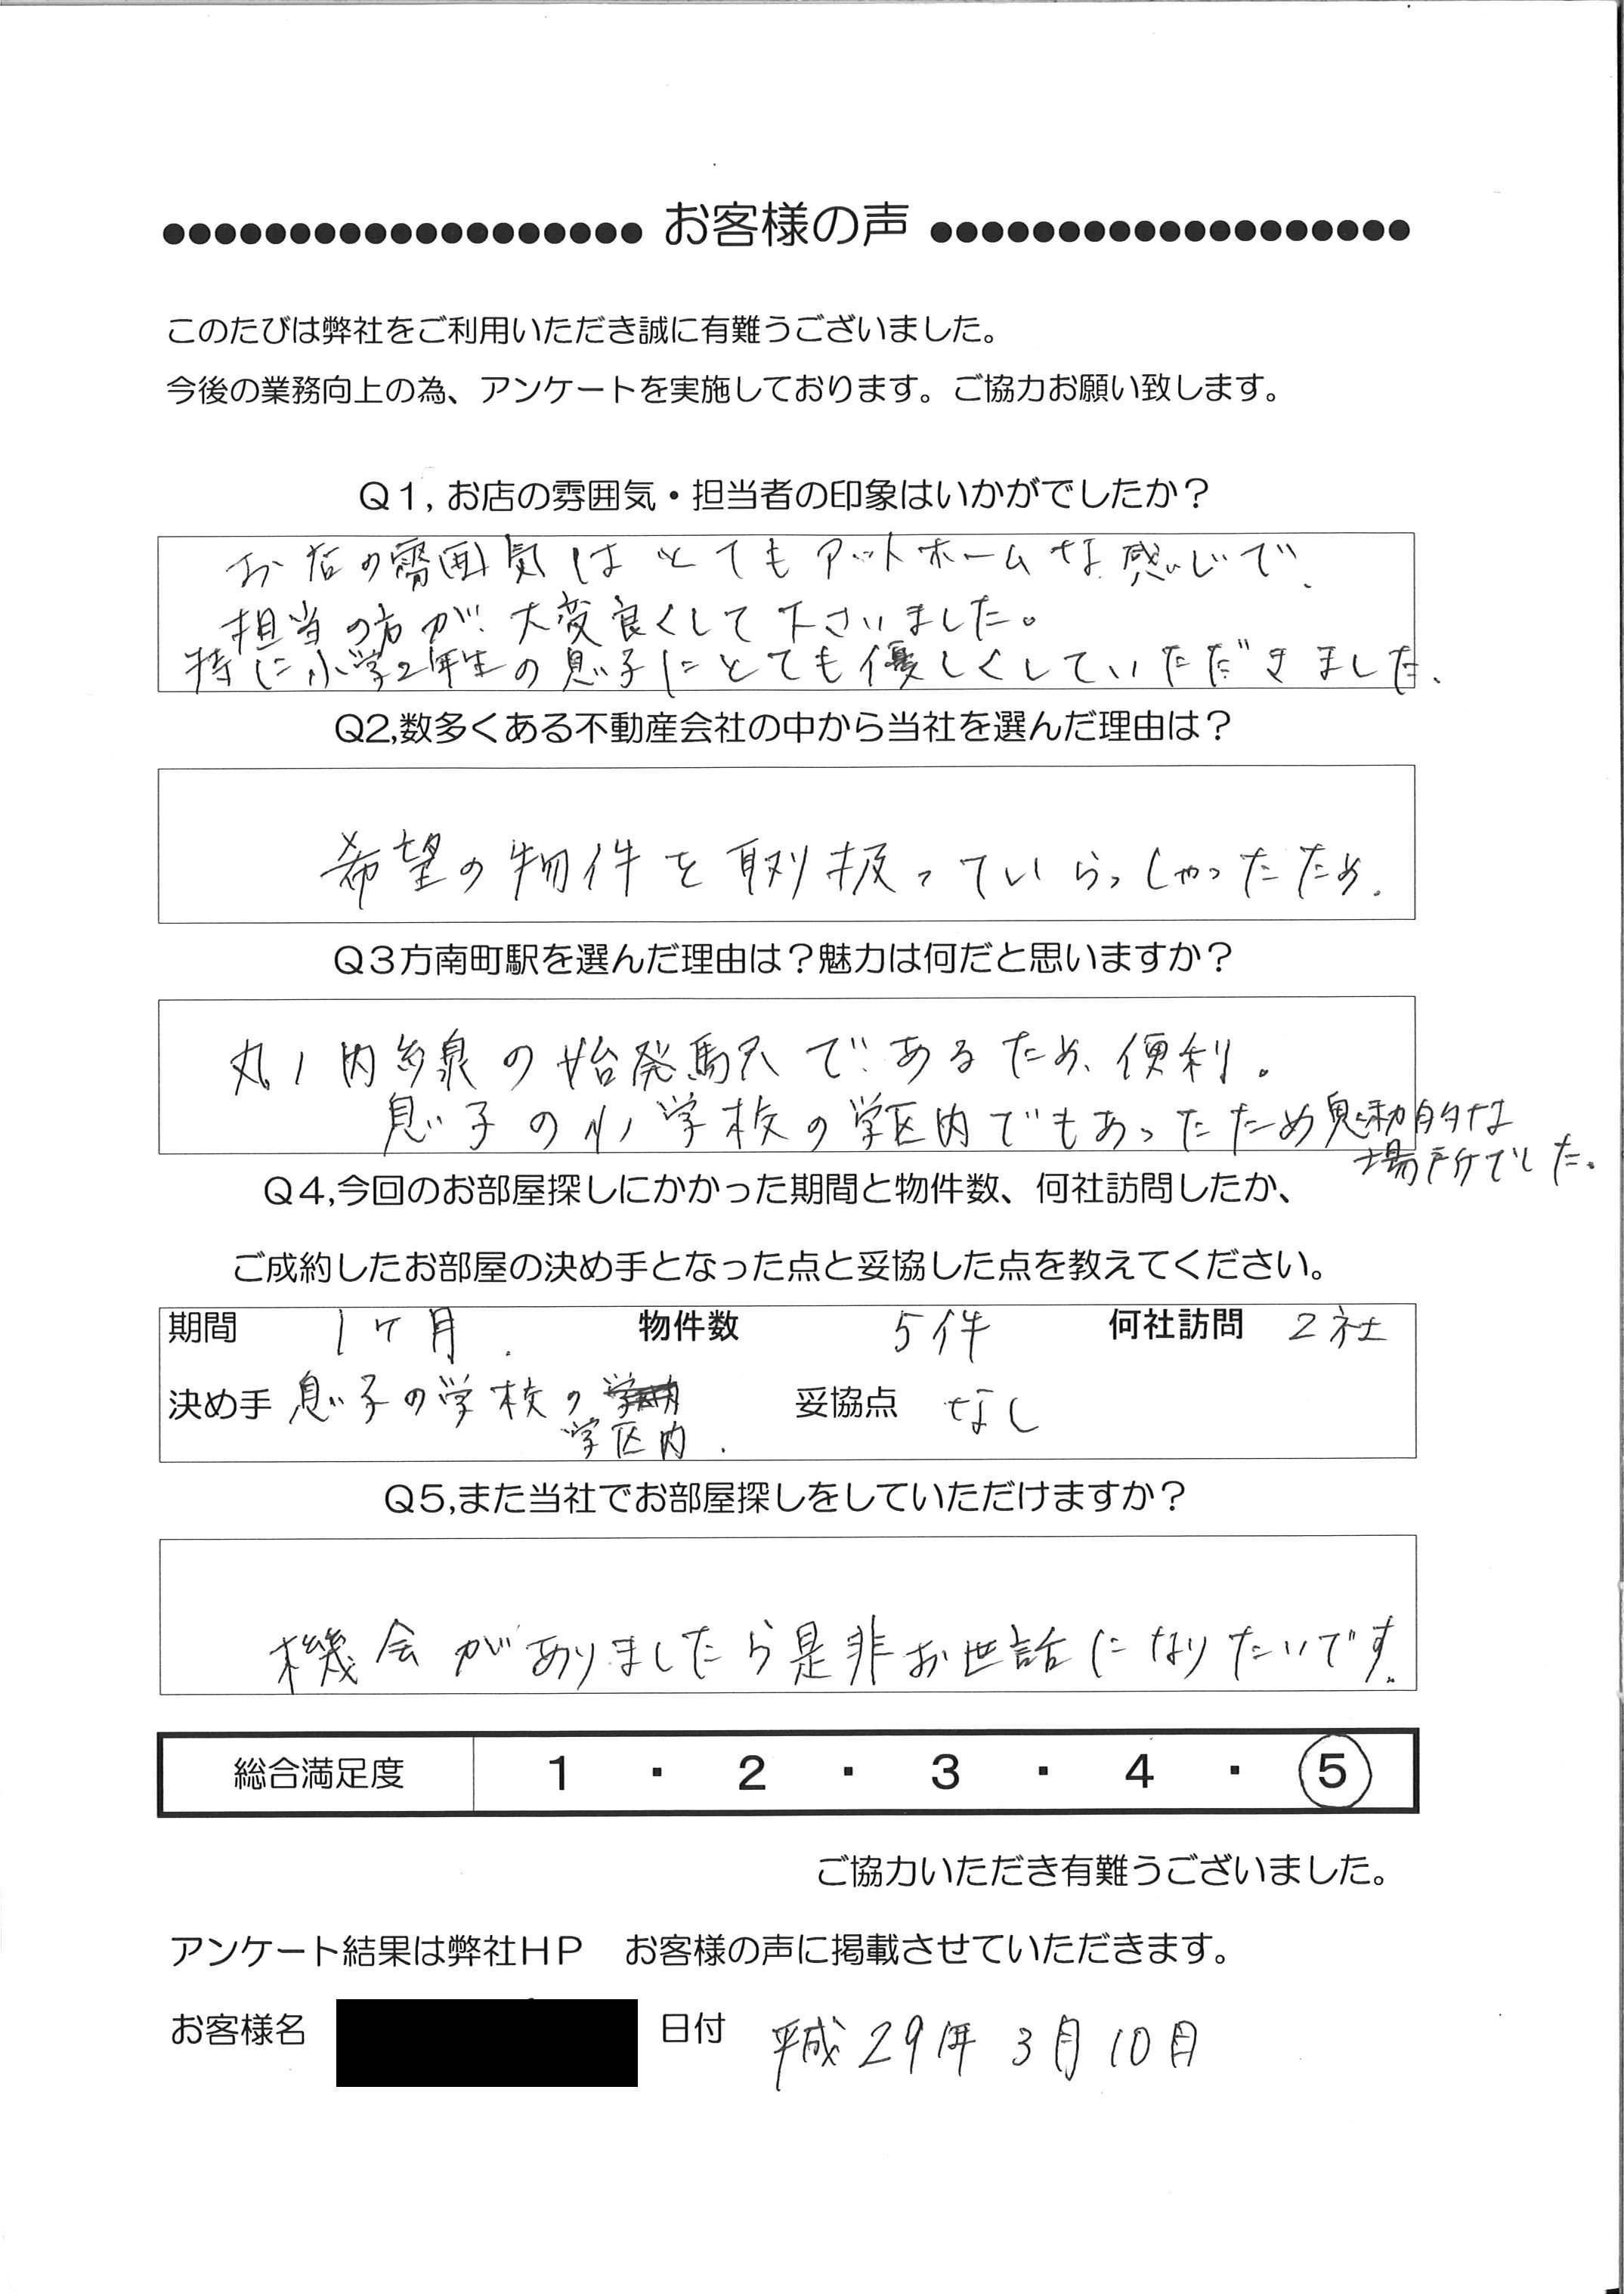 ●●●●●●●●●●●●●●●●●●● お客様の声 ●●●●●●●●●●●●●●●●●●●
このたびは弊社をご利用いただき誠に有難うございました。
今後の業務向上の為、アンケートを実施しております。ご協力お願い致します。
Q1, お店の雰囲気・担当者の印象はいかがでしたか？
お店の雰囲気はとてもアットホームな感じで、
担当の方が、大変良くして下さいました。
特に小学2年生の息子にとても優しくしていただきました。
Q2,数多くある不動産会社の中から当社を選んだ理由は？
希望の物件を取り扱っていらっしゃったため。
Q3方南町駅を選んだ理由は？魅力は何だと思いますか？
丸ノ内線の始発駅であるため、便利。
息子の小学校の学区内でもあったため魅力的な
場所でした。
Q4,今回のお部屋探しにかかった期間と物件数、何社訪問したか、
ご成約したお部屋の決め手となった点と妥協した点を教えてください。
期間 1ヶ月. 物件数 5件 何社訪問 2社
決め手 息子の学校の 妥協点 なし
学区内.
Q5,また当社でお部屋探しをしていただけますか？
機会がありましたら是非お世話になりたいです。
総合満足度 1 ・ 2 ・ 3 ・ 4 ・ 5
ご協力いただき有難うございました。
アンケート結果は弊社HP　お客様の声に掲載させていただきます。
お客様名 日付 平成29年3月10日